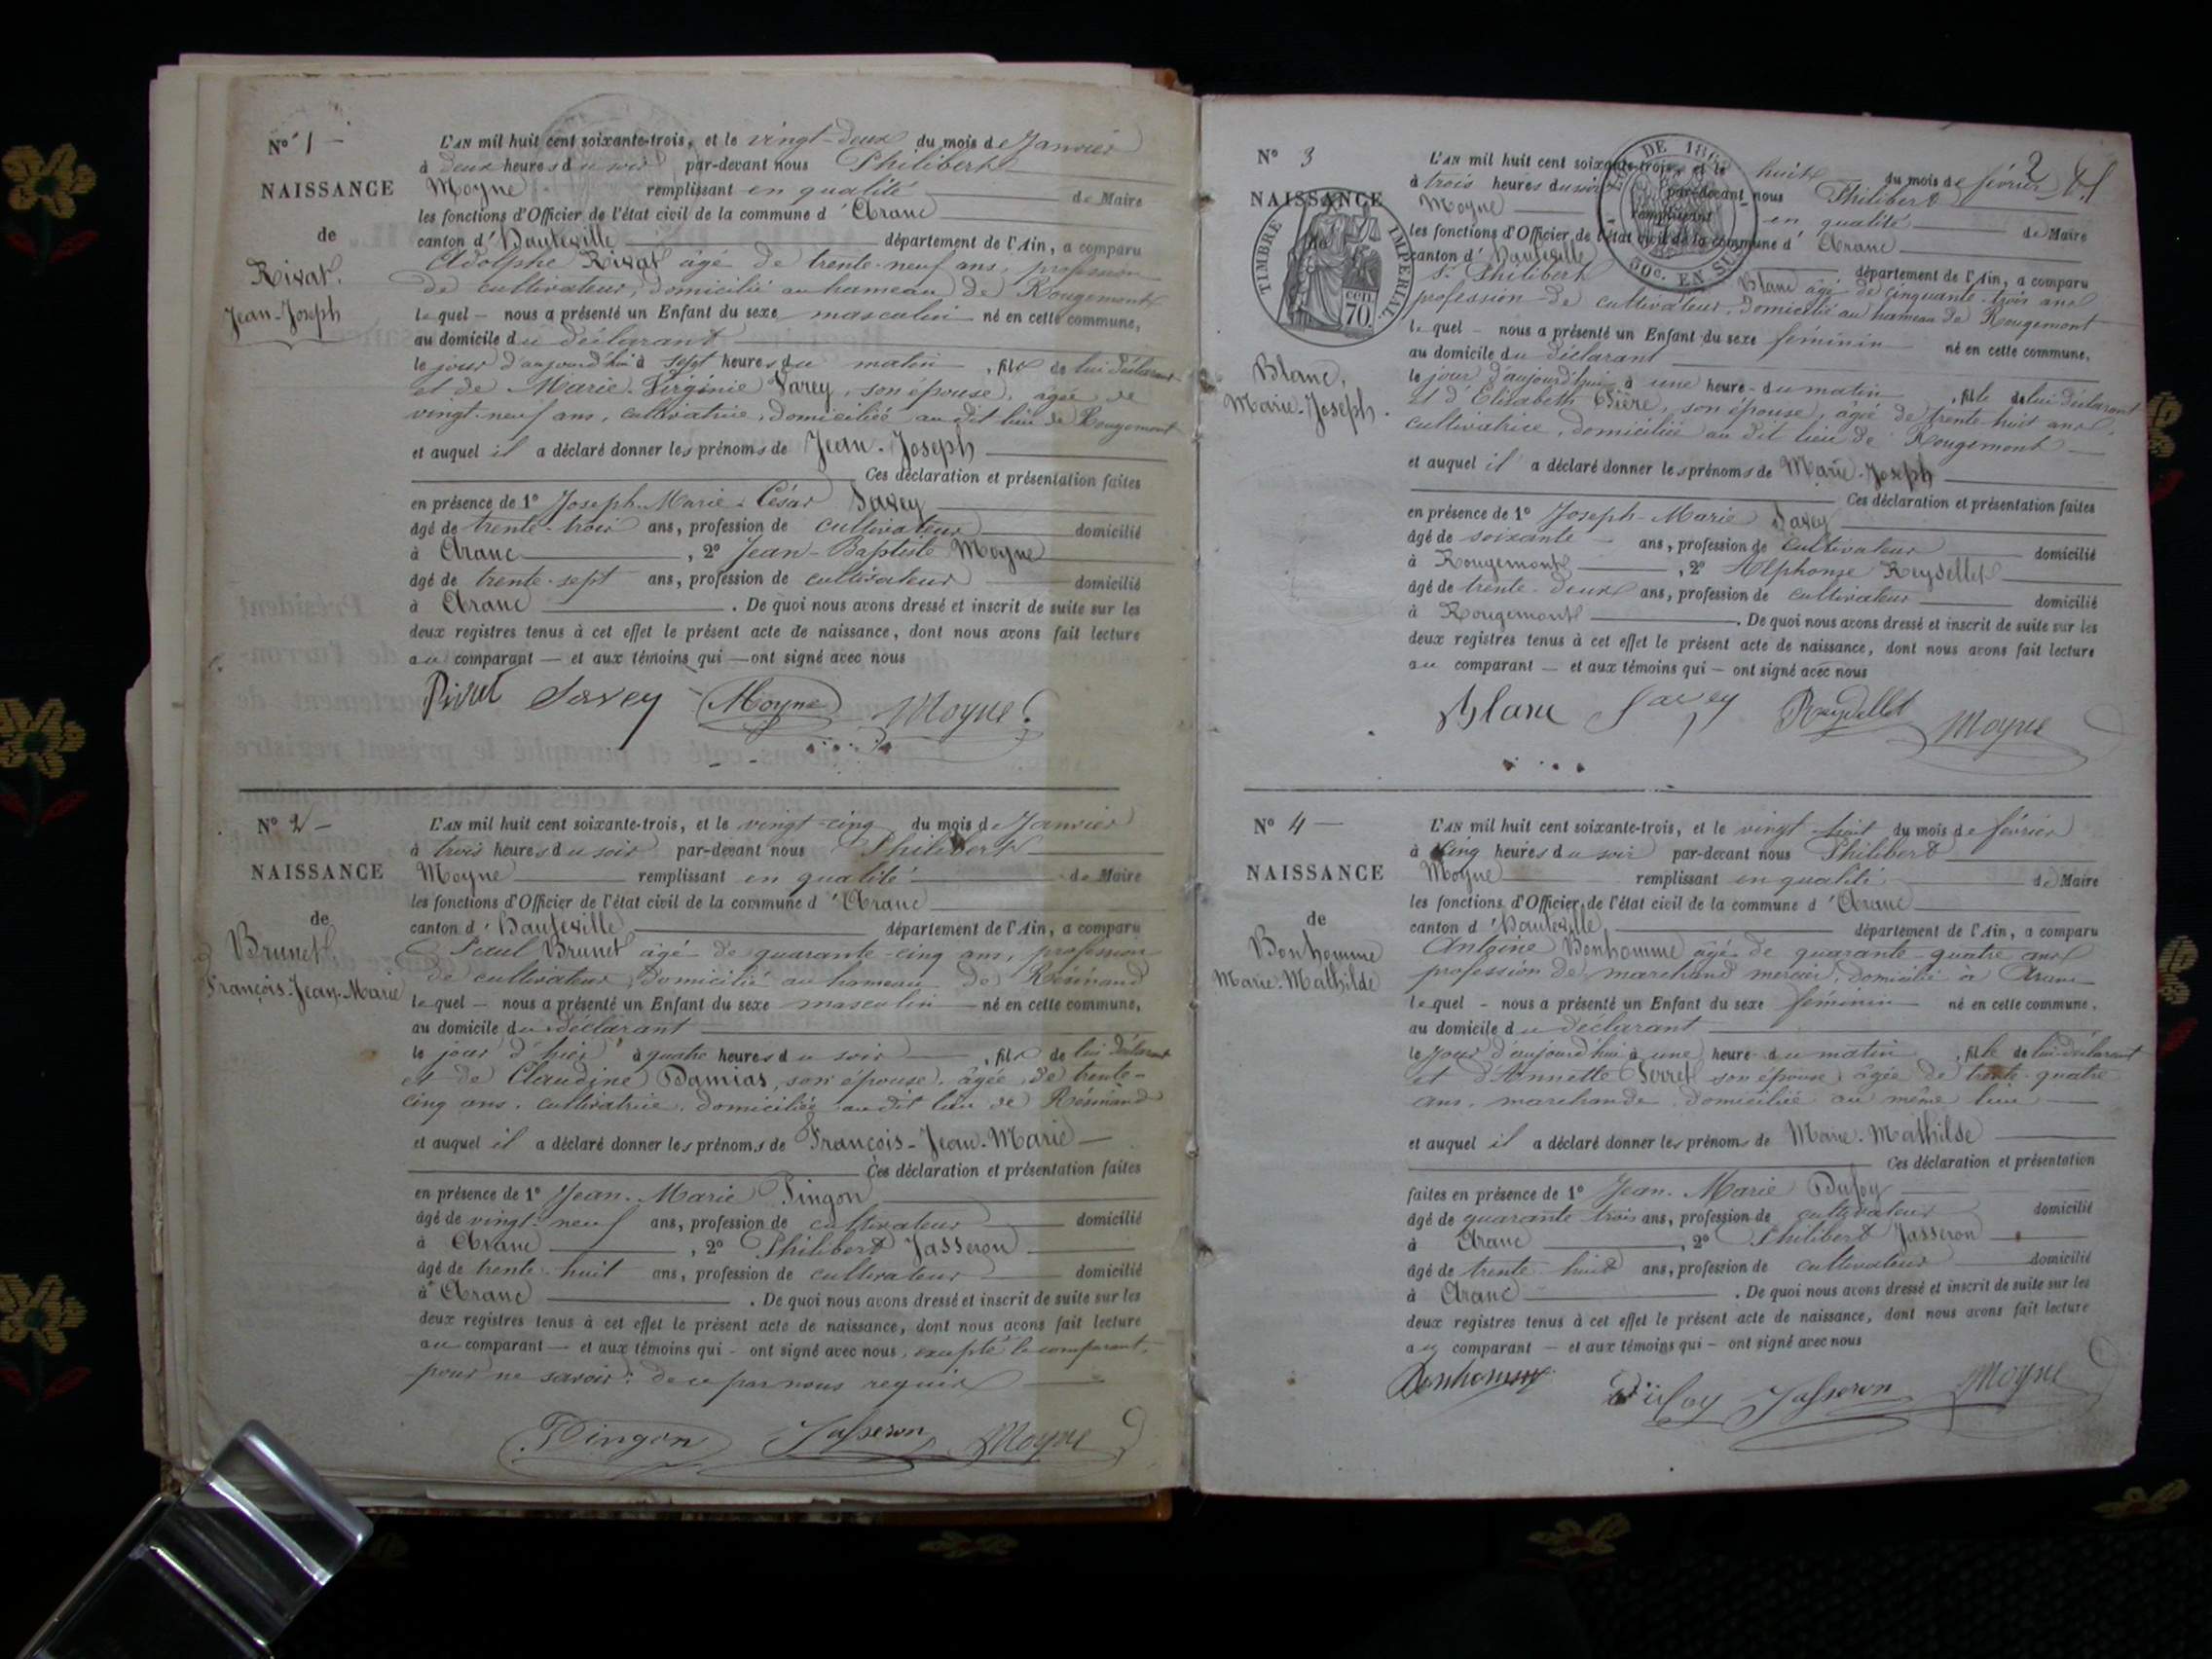 N° 1 -
NAISSANCE
de
Rivat.
Jean-Joseph
L'AN mil huit cent soixante-trois, et le vingt-deux du mois de Janvier
à deux heures du soir par-devant nous Philibert
Moyne remplissant en qualité de Maire
les fonctions d'Officier de l'état civil de la commune d'Aranc
canton d'Hauteville département de l'Ain, a comparu
Adolphe Rivat âgé de trente-neuf ans, profession
de cultivateur, domicilié au hameau de Rougemont
lequel - nous a présenté un Enfant du sexe masculin né en cette commune,
au domicile du déclarant
le jour d'aujourd'hui à sept heures du matin, fils de lui déclarant
et de Marie-Virginie Savey, son épouse, âgée de
vingt-neuf ans, cultivatrice, domiciliée au dit lieu de Rougemont
et auquel il a déclaré donner les prénoms de Jean-Joseph
Ces déclaration et présentation faites
en présence de 1° Joseph-Marie-César Savey
âgé de trente-trois ans, profession de cultivateur domicilié
à Aranc, 2° Jean-Baptiste Moyne
âgé de trente-sept ans, profession de cultivateur domicilié
à Aranc. De quoi nous avons dressé et inscrit de suite sur les
deux registres tenus à cet effet le présent acte de naissance, dont nous avons fait lecture
au comparant — et aux témoins qui — ont signé avec nous
Rivat Savey Moyne Moyne
N° 2 -
NAISSANCE
de
Brunet,
François-Jean-Marie
L'AN mil huit cent soixante-trois, et le vingt-cinq du mois de Janvier
à trois heures du soir par-devant nous Philibert
Moyne remplissant en qualité de Maire
les fonctions d'Officier de l'état civil de la commune d'Aranc
canton d'Hauteville département de l'Ain, a comparu
Paul Brunet âgé de quarante-cinq ans, profession
de cultivateur, domicilié au hameau de Résinand
lequel — nous a présenté un Enfant du sexe masculin né en cette commune,
au domicile du déclarant
le jour d'hier à quatre heures du soir, fils de lui déclarant
et de Claudine Damias, son épouse, âgée de trente-
cinq ans, cultivatrice, domiciliée au dit lieu de Résinand
et auquel il a déclaré donner les prénoms de François-Jean-Marie
Ces déclaration et présentation faites
en présence de 1° Jean-Marie Pingon
âgé de vingt-neuf ans, profession de cultivateur domicilié
à Aranc, 2° Philibert Jasseron
âgé de trente-huit ans, profession de cultivateur domicilié
à Aranc. De quoi nous avons dressé et inscrit de suite sur les
deux registres tenus à cet effet le présent acte de naissance, dont nous avons fait lecture
au comparant — et aux témoins qui - ont signé avec nous, excepté le comparant,
pour ne savoir: de ce par nous requis
Pingon Jasseron Moyne
2
N° 3
NAISSANCE
TIMBRE IMPÉRIAL
70.
DE 186
50c. EN SUS
Blanc,
Marie-Joseph.
L'AN mil huit cent soixante-trois, et le huit du mois de février
à trois heures du soir par-devant nous Philibert
Moyne remplissant en qualité de Maire
les fonctions d'Officier de l'état civil de la commune d'Aranc
canton d'Hauteville département de l'Ain, a comparu
Philibert Blanc âgé de cinquante-trois ans
profession de cultivateur, domicilié au hameau de Rougemont
lequel - nous a présenté un Enfant du sexe féminin né en cette commune,
au domicile du déclarant
le jour d'aujourd'hui à une heure - du matin, fille de lui déclarant
et d'Elisabeth son épouse, âgée de trente-huit ans,
cultivatrice, domiciliée au dit lieu de Rougemont
et auquel il a déclaré donner les prénoms de Marie-Joseph
Ces déclaration et présentation faites
en présence de 1° Joseph-Marie Savey
âgé de soixante ans, profession de cultivateur domicilié
à Rougemont, 2° Alphonse Reydellet
âgé de trente-deux ans, profession de cultivateur domicilié
à Rougemont. De quoi nous avons dressé et inscrit de suite sur les
deux registres tenus à cet effet le présent acte de naissance, dont nous avons fait lecture
au comparant — et aux témoins qui - ont signé avec nous
Blanc Savey Reydellet Moyne
N° 4 —
NAISSANCE
de
Bonhomme
Marie-Mathilde
L'AN mil huit cent soixante-trois, et le vingt-huit du mois de février
à cinq heures du soir par-devant nous Philibert
Moyne remplissant en qualité de Maire
les fonctions d'Officier de l'état civil de la commune d'Aranc
canton d'Hauteville département de l'Ain, a comparu
Antoine Bonhomme âgé de quarante-quatre ans
profession de marchand mercier, domicilié à Aranc
lequel - nous a présenté un Enfant du sexe féminin né en cette commune,
au domicile du déclarant
le jour d'aujourd'hui à une heure du matin, fille de lui déclarant
et d'Annette Serret son épouse âgée de trente-quatre
ans, marchande, domiciliée au même lieu
et auquel il a déclaré donner les prénoms de Marie-Mathilde
Ces déclaration et présentation
faites en présence de 1° Jean-Marie Dufoy
âgé de quarante trois ans, profession de cultivateur domicilié
à Aranc, 2° Philibert Jasseron
âgé de trente-huit ans, profession de cultivateur domicilié
à Aranc. De quoi nous avons dressé et inscrit de suite sur les
deux registres tenus à cet effet le présent acte de naissance, dont nous avons fait lecture
au comparant — et aux témoins qui - ont signé avec nous
Bonhomme Dufoy Jasseron Moyne